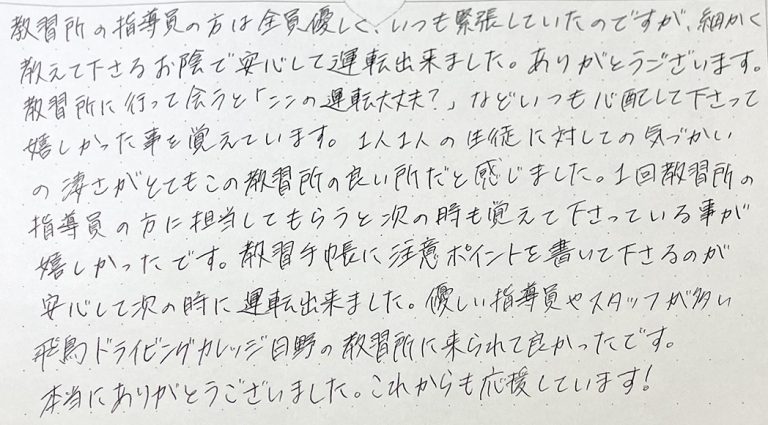 教習所の指導員の方は全員優しく、いつも緊張していたのですが、細かく
教えて下さるお陰で安心して運転出来ました。ありがとうございます。
教習所に行って会うと「ここの運転大丈夫?」などいつも心配して下さって
嬉しかった事を覚えています。1人1人の生徒に対しての気づかい
の凄さがとてもこの教習所の良い所だと感じました。1回教習所の
指導員の方に担当してもらうと次の時も覚えて下さっている事が
嬉しかったです。教習手帳に注意ポイントを書いて下さるのが
安心して次の時に運転出来ました。優しい指導員やスタッフが多い
飛鳥ドライビングカレッジ日野の教習所に来られて良かったです。
本当にありがとうございました。これからも応援しています!